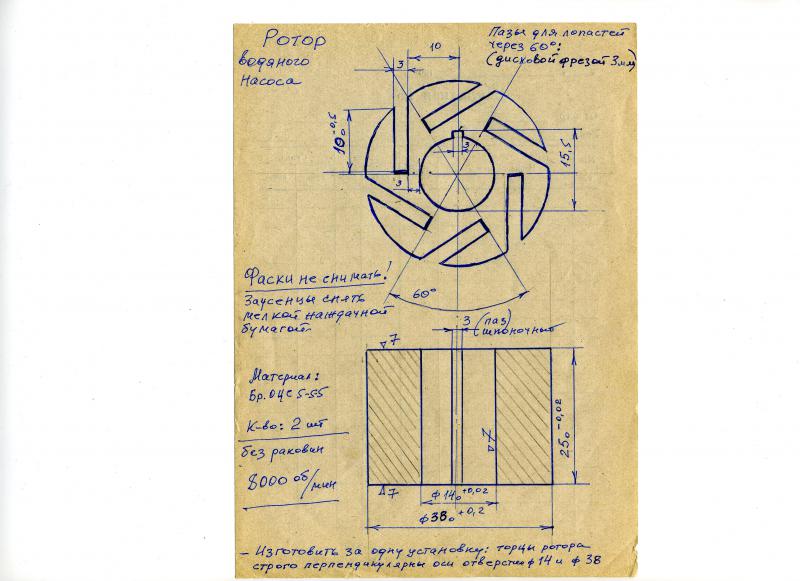 Ротор
водяного
насоса
Пазы для лопастей
через 60°:
(дисковой фрезой 3мм)
10
3
10₀⁻⁰·⁵
3
3
15,5
60°
Фаски не снимать!
Заусенцы снять
мелкой наждачной
бумагой.
3 (паз
шпоночный)
7
Материал:
Бр. ОЦС 5-5-5
К-во: 2 шт
без раковин
8000 об/мин
7
7
25₀⁻⁰·⁰²
ф14₀⁺⁰·⁰²
ф38₀⁺⁰·²
- Изготовить за одну установку: торцы ротора
строго перпендикулярны оси отверстия ф14 и ф 38